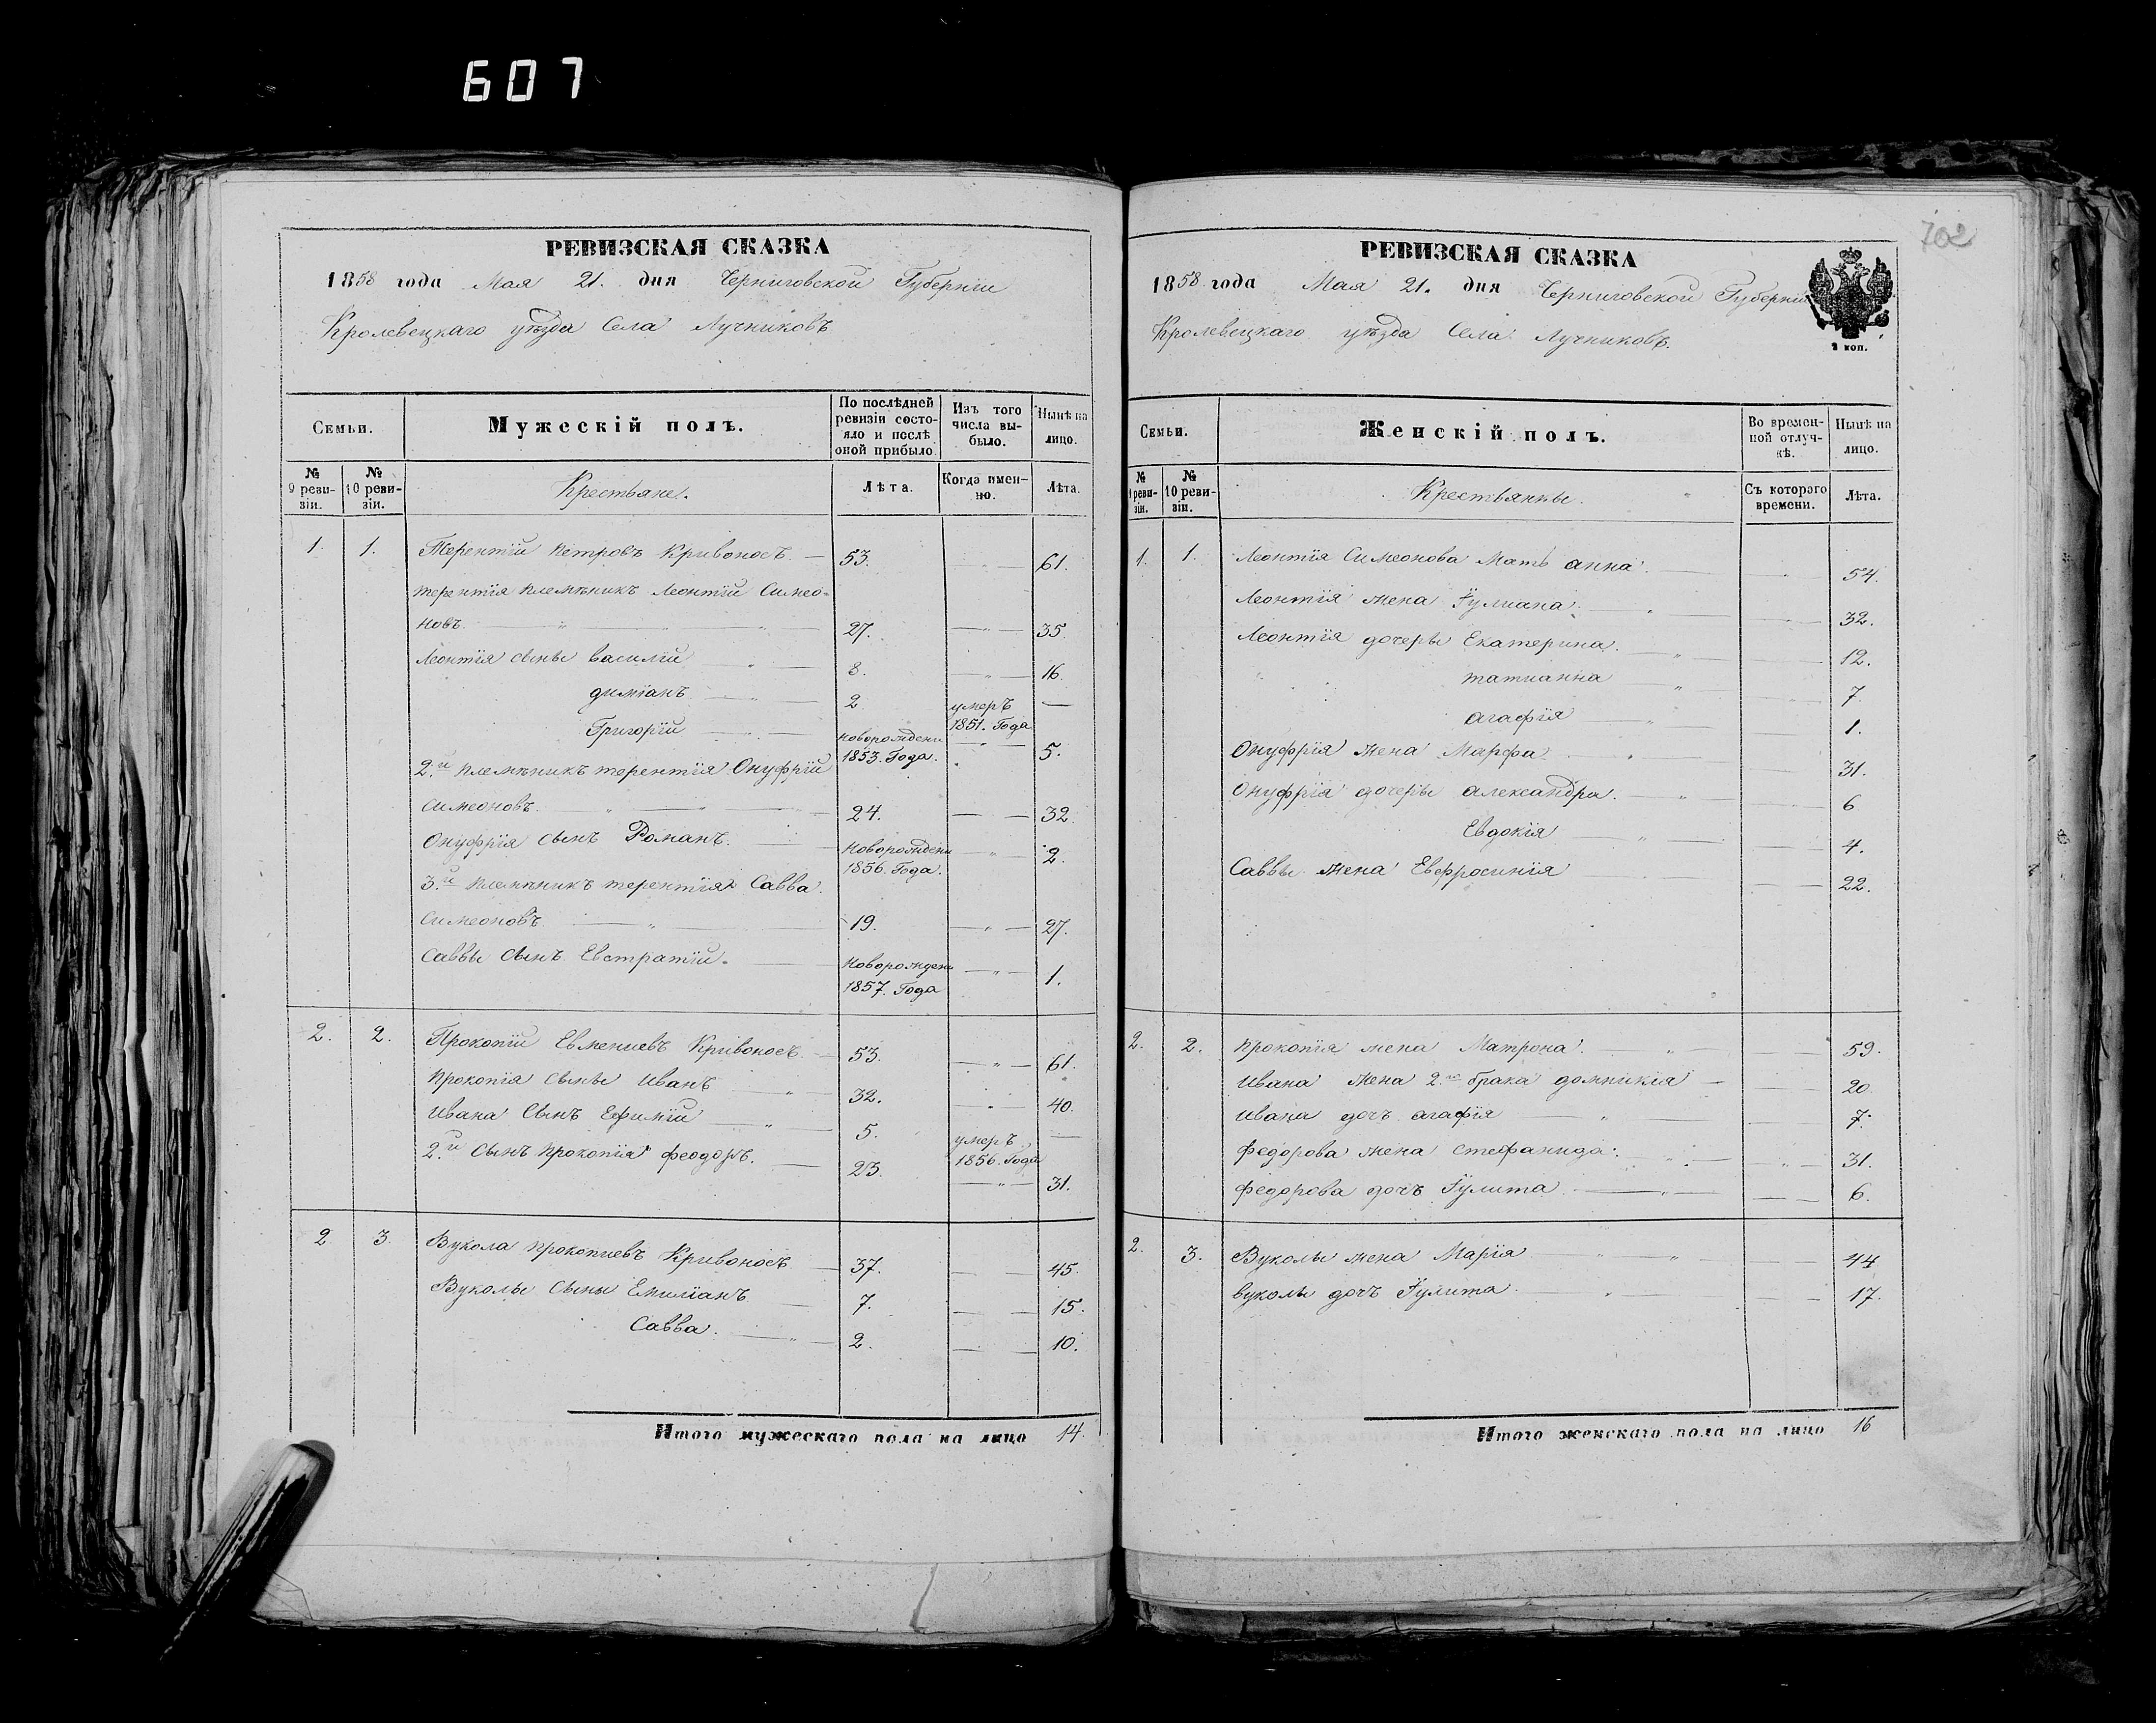 607
702
РЕВИЗСКАЯ СКАЗКА
1858 года Мая 21. дня Черниговской Губерніи
Кролевецкаго уѣзда Села Лучниковъ
Семьи.
Мужескій полъ.
По послѣдней ревизіи состояло и послѣ оной прибыло.
Изъ того числа выбыло.
Нынѣ на лицо.
№ 9 ревизіи.
№ 10 ревизіи.
Крестьяне.
Лѣта.
Когда именно.
Лѣта.
1. 1. Терентій Петровъ Кривоносъ 53. 61.
терентія племѣникъ Леонтій Симео-
новъ 27. 35.
Леонтія сыны василій 8. 16.
диміанъ 2 умеръ 1851. Года
Григорій новорожденъ 1853. Года. 5.
2.й племѣникъ терентія Онуфрій
симеоновъ 24. 32.
Онуфрія сынъ Романъ. Новорожденъ 1856. Года. 2.
3.й племѣникъ терентія Савва
Симеоновъ 19. 27.
Саввы сынъ Евстратій. Новорожденъ 1857. Года 1.
2. 2. Прокопій Евмениевъ Кривоносъ 53. 61.
Прокопія сыны Иванъ 32. 40.
Ивана Сынъ Ефимій 5. умеръ 1856. Года
2.й Сынъ Прокопія феодоръ. 23. 31.
2 3. Вукола Прокопиевъ Кривоносъ 37. 45.
Вуколы Сыны Емиліанъ 7. 15.
Савва. 2. 10.
Итого мужескаго пола на лицо 14.
РЕВИЗСКАЯ СКАЗКА
1858 года Мая 21. дня Черниговской Губерніи
Кролевецкаго уѣзда Села Лучниковъ.
2 коп.
Семьи.
Женскій полъ.
Во временной отлучкѣ.
Нынѣ на лицо.
№ 9 ревизіи.
№ 10 ревизіи.
Крестьянки.
Съ котораго времени.
Лѣта.
1. 1. Леонтія Симеонова Мать анна 54.
Леонтія жена Іулиана 32.
Леонтія дочери Екатерина. 12.
татианна 7.
агафія 1.
Онуфрія жена Марфа 31.
Онуфрія дочери александра. 6
Евдокія 4.
Саввы жена Евфросинія 22.
2. 2. Прокопія жена Матрона 59.
Ивана жена 2.го брака домникія 20
Ивана дочь агафія 7.
федорова жена стефанида. 31.
федорова дочь Іулита 6.
2. 3. Вуколы жена Марія 44
вуколы дочь Іулита 17.
Итого женскаго пола на лицо 16